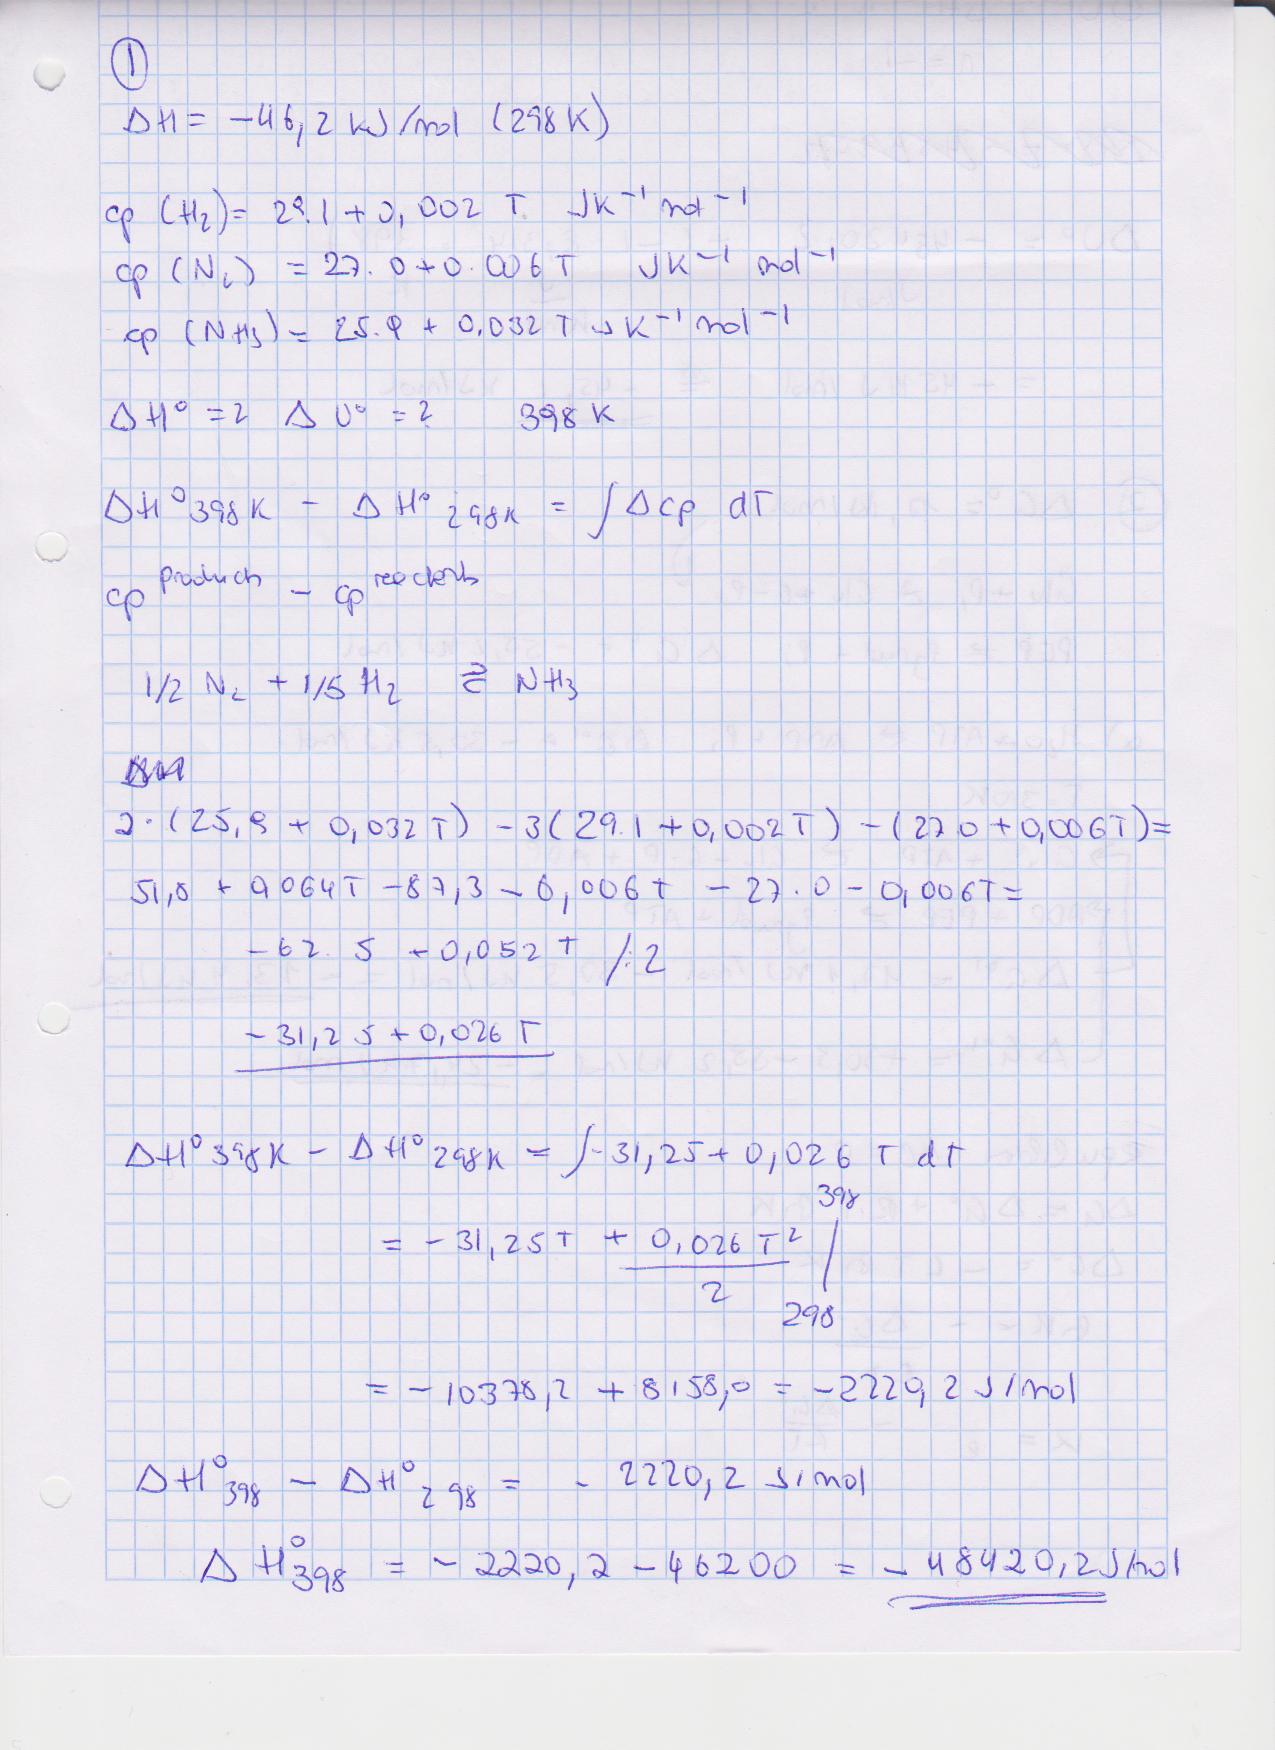 1
ΔH = -46,2 kJ/mol (298K)
cp (H2) = 29.1 + 0,002 T JK⁻¹ mol⁻¹
cp (N2) = 27.0 + 0.006 T JK⁻¹ mol⁻¹
cp (NH3) = 25.9 + 0,032 T JK⁻¹ mol⁻¹
ΔH° = ? ΔU° = ? 398 K
ΔH°398K - ΔH°298K = ∫Δcp dT
cp products - cp reactants
1/2 N2 + 1/5 H2 ⇄ NH3
2·(25,9 + 0,032T) - 3(29.1 + 0,002T) - (27.0 + 0,006T) =
51,8 + 0,064T - 87,3 - 0,006T - 27.0 - 0,006T =
-62.5 + 0,052T /:2
-31,25 + 0,026 T
ΔH°398K - ΔH°298K = ∫-31,25 + 0,026 T dT
= -31,25T + 0,026 T²/2 |298 398
= -10378,2 + 8158,0 = -2220,2 J/mol
ΔH°398 - ΔH°298 = -2220,2 J/mol
ΔH°398 = -2220,2 - 46200 = -48420,2 J/mol